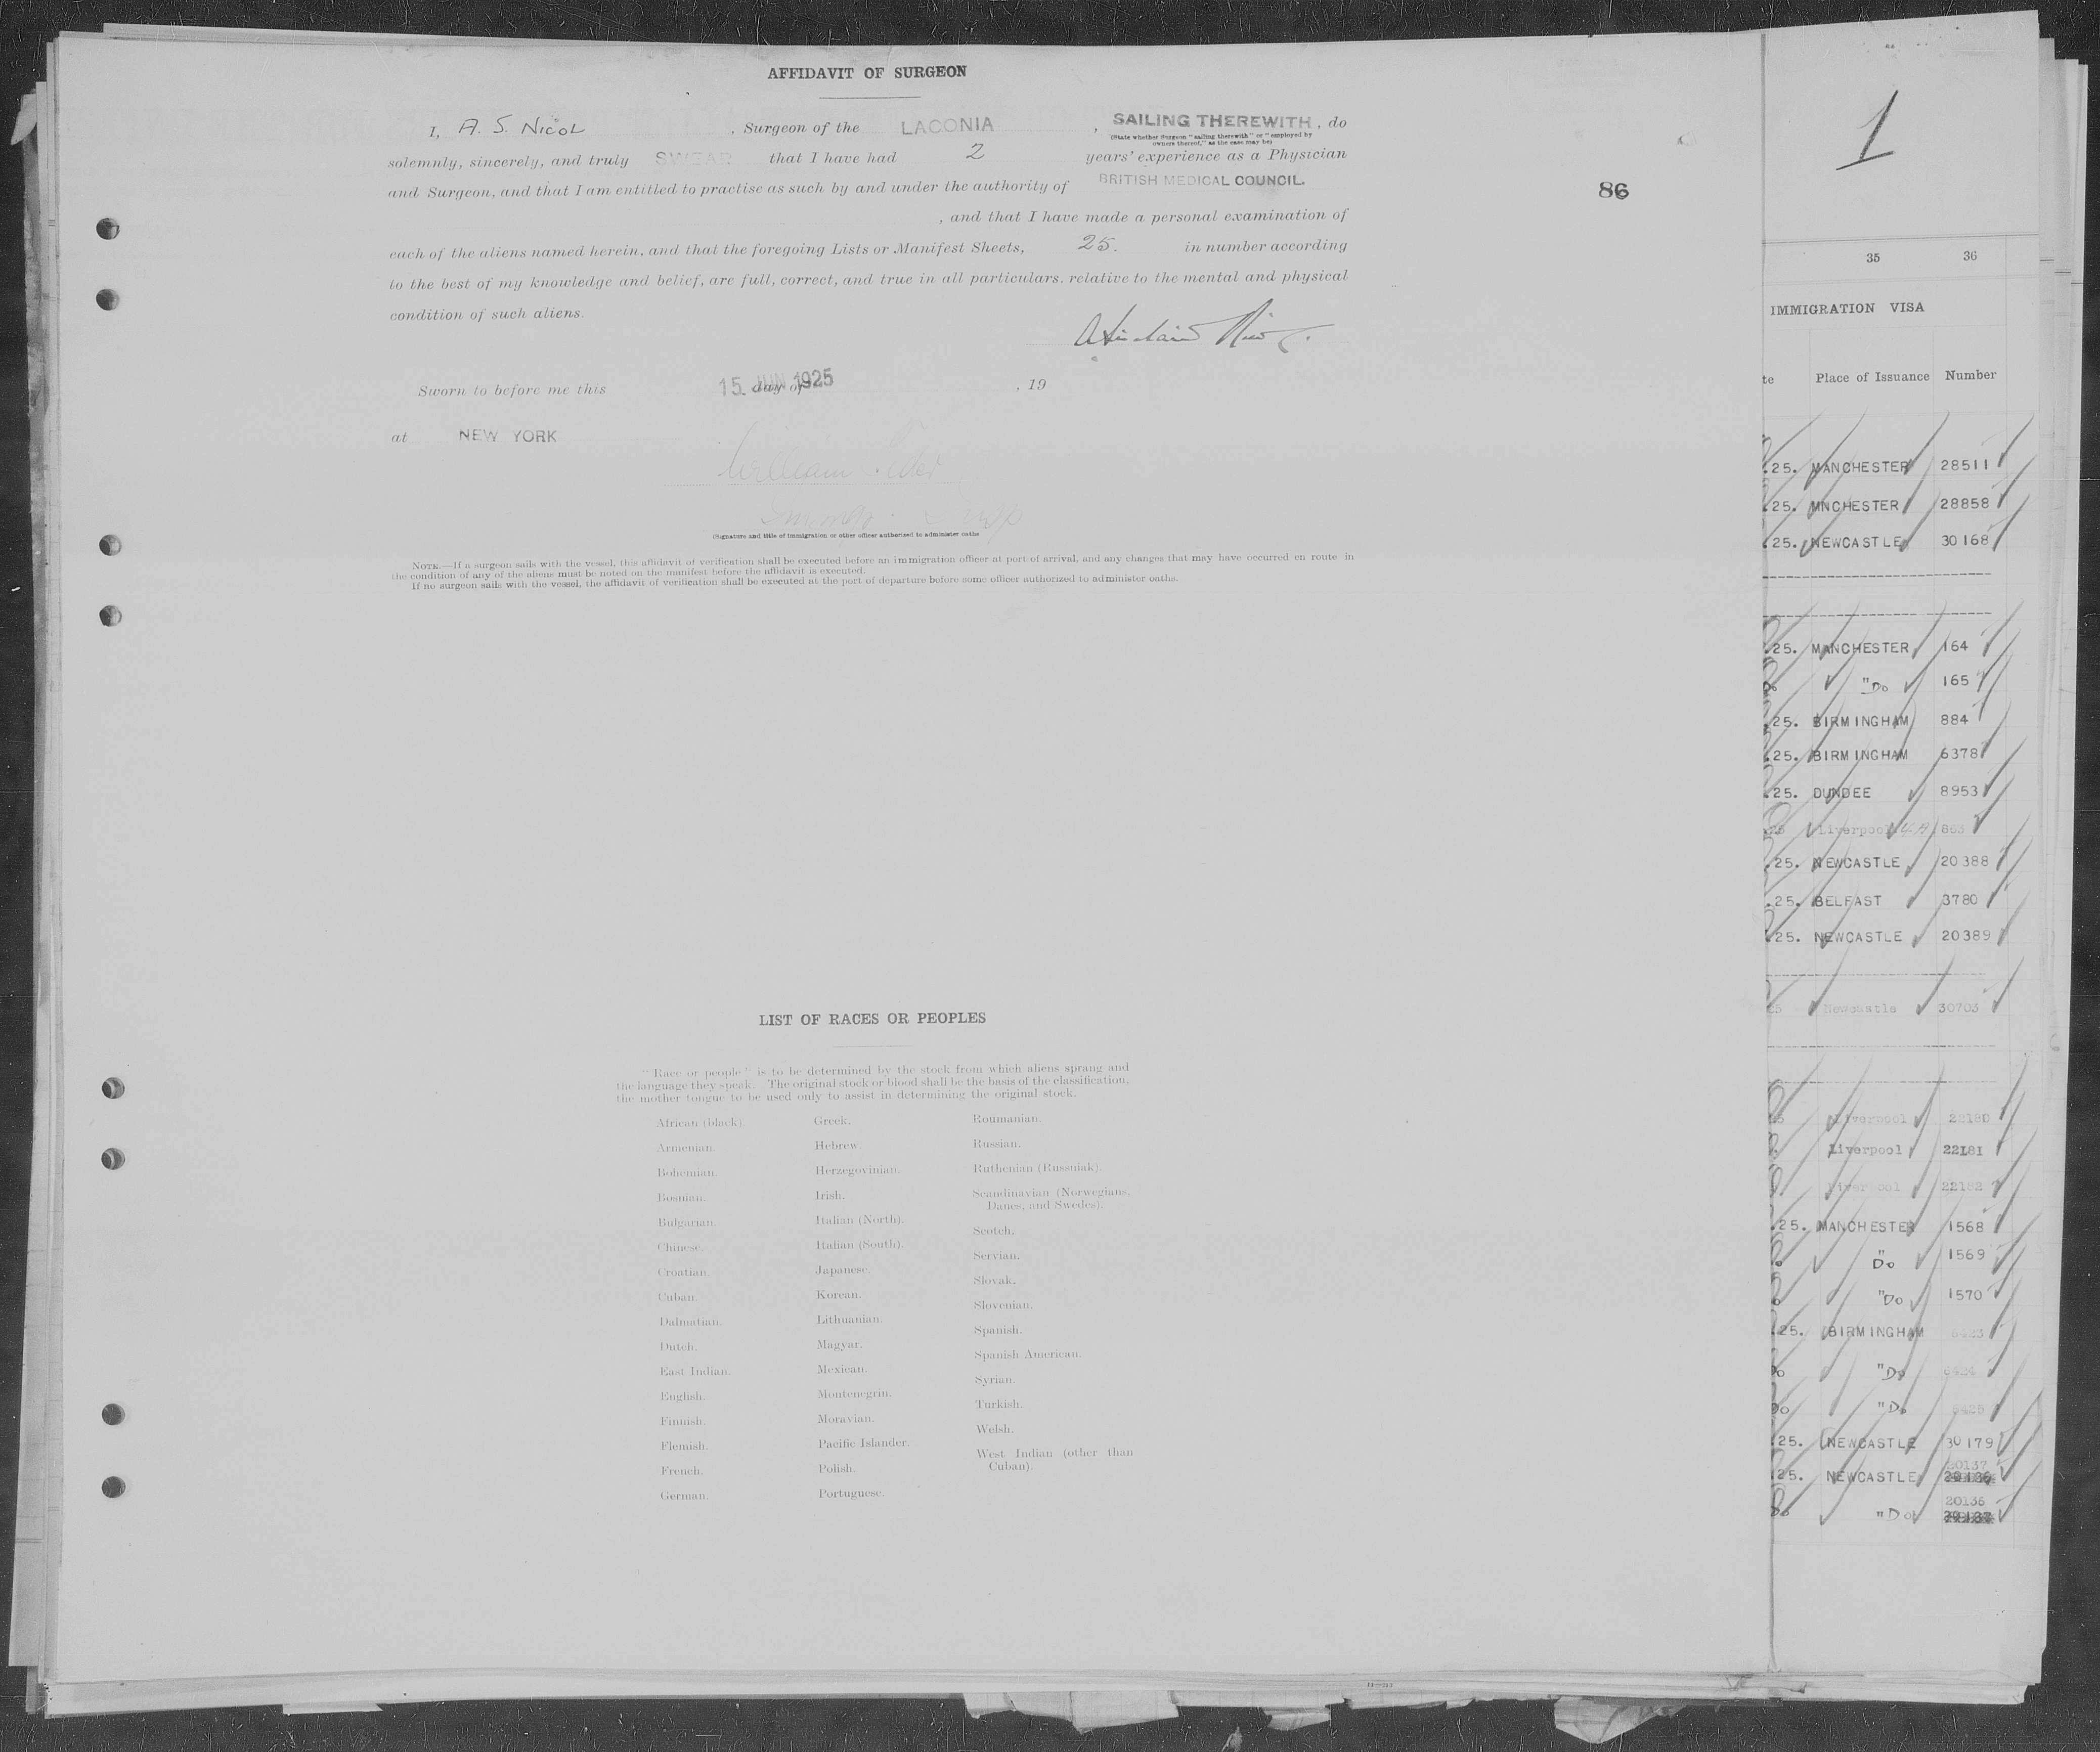 AFFIDAVIT OF SURGEON
I, A. S. NICOL , Surgeon of the LACONIA , SAILING THEREWITH , do
(State whether Surgeon "sailing therewith" or "employed by
owners thereof," as the case may be)
solemnly, sincerely, and truly SWEAR that I have had 2 years' experience as a Physician
and Surgeon, and that I am entitled to practise as such by and under the authority of BRITISH MEDICAL COUNCIL.
, and that I have made a personal examination of
each of the aliens named herein, and that the foregoing Lists or Manifest Sheets, 25. in number according
to the best of my knowledge and belief, are full, correct, and true in all particulars, relative to the mental and physical
condition of such aliens.
Sworn to before me this 15 JUN 1925 day of , 19
at NEW YORK
William
(Signature and title of immigration or other officer authorized to administer oaths
NOTE.—If a surgeon sails with the vessel, this affidavit of verification shall be executed before an immigration officer at port of arrival, and any changes that may have occurred en route in
the condition of any of the aliens must be noted on the manifest before the affidavit is executed.
If no surgeon sails with the vessel, the affidavit of verification shall be executed at the port of departure before some officer authorized to administer oaths.
86
LIST OF RACES OR PEOPLES
"Race or people" is to be determined by the stock from which aliens sprang and
the language they speak. The original stock or blood shall be the basis of the classification,
the mother tongue to be used only to assist in determining the original stock.
African (black).
Armenian.
Bohemian.
Bosnian.
Bulgarian.
Chinese.
Croatian.
Cuban.
Dalmatian.
Dutch.
East Indian.
English.
Finnish.
Flemish.
French.
German.
Greek.
Hebrew.
Herzegovinian.
Irish.
Italian (North).
Italian (South).
Japanese.
Korean.
Lithuanian.
Magyar.
Mexican.
Montenegrin.
Moravian.
Pacific Islander.
Polish.
Portuguese.
Roumanian.
Russian.
Ruthenian (Russniak).
Scandinavian (Norwegians,
Danes, and Swedes).
Scotch.
Servian.
Slovak.
Slovenian.
Spanish.
Spanish American.
Syrian.
Turkish.
Welsh.
West Indian (other than
Cuban).
14—212
1
35 36
IMMIGRATION VISA
te Place of Issuance Number
.25. MANCHESTER 28511
.25. MNCHESTER 28858
.25. NEWCASTLE 30168
.25. MANCHESTER 164
"Do 165
.25. BIRMINGHAM 884
.25. BIRMINGHAM 6378
.25. DUNDEE 8953
Liverpool
.25. NEWCASTLE 20388
.25. BELFAST 3780
.25. NEWCASTLE 20389
Newcastle 30703
Liverpool 22180
Liverpool 22181
Liverpool 22182
.25. MANCHESTER 1568
"Do 1569
"Do 1570
.25. BIRMINGHAM 6423
"Do 6424
"Do 6425
.25. NEWCASTLE 30179
20137
.25. NEWCASTLE
20136
"Do